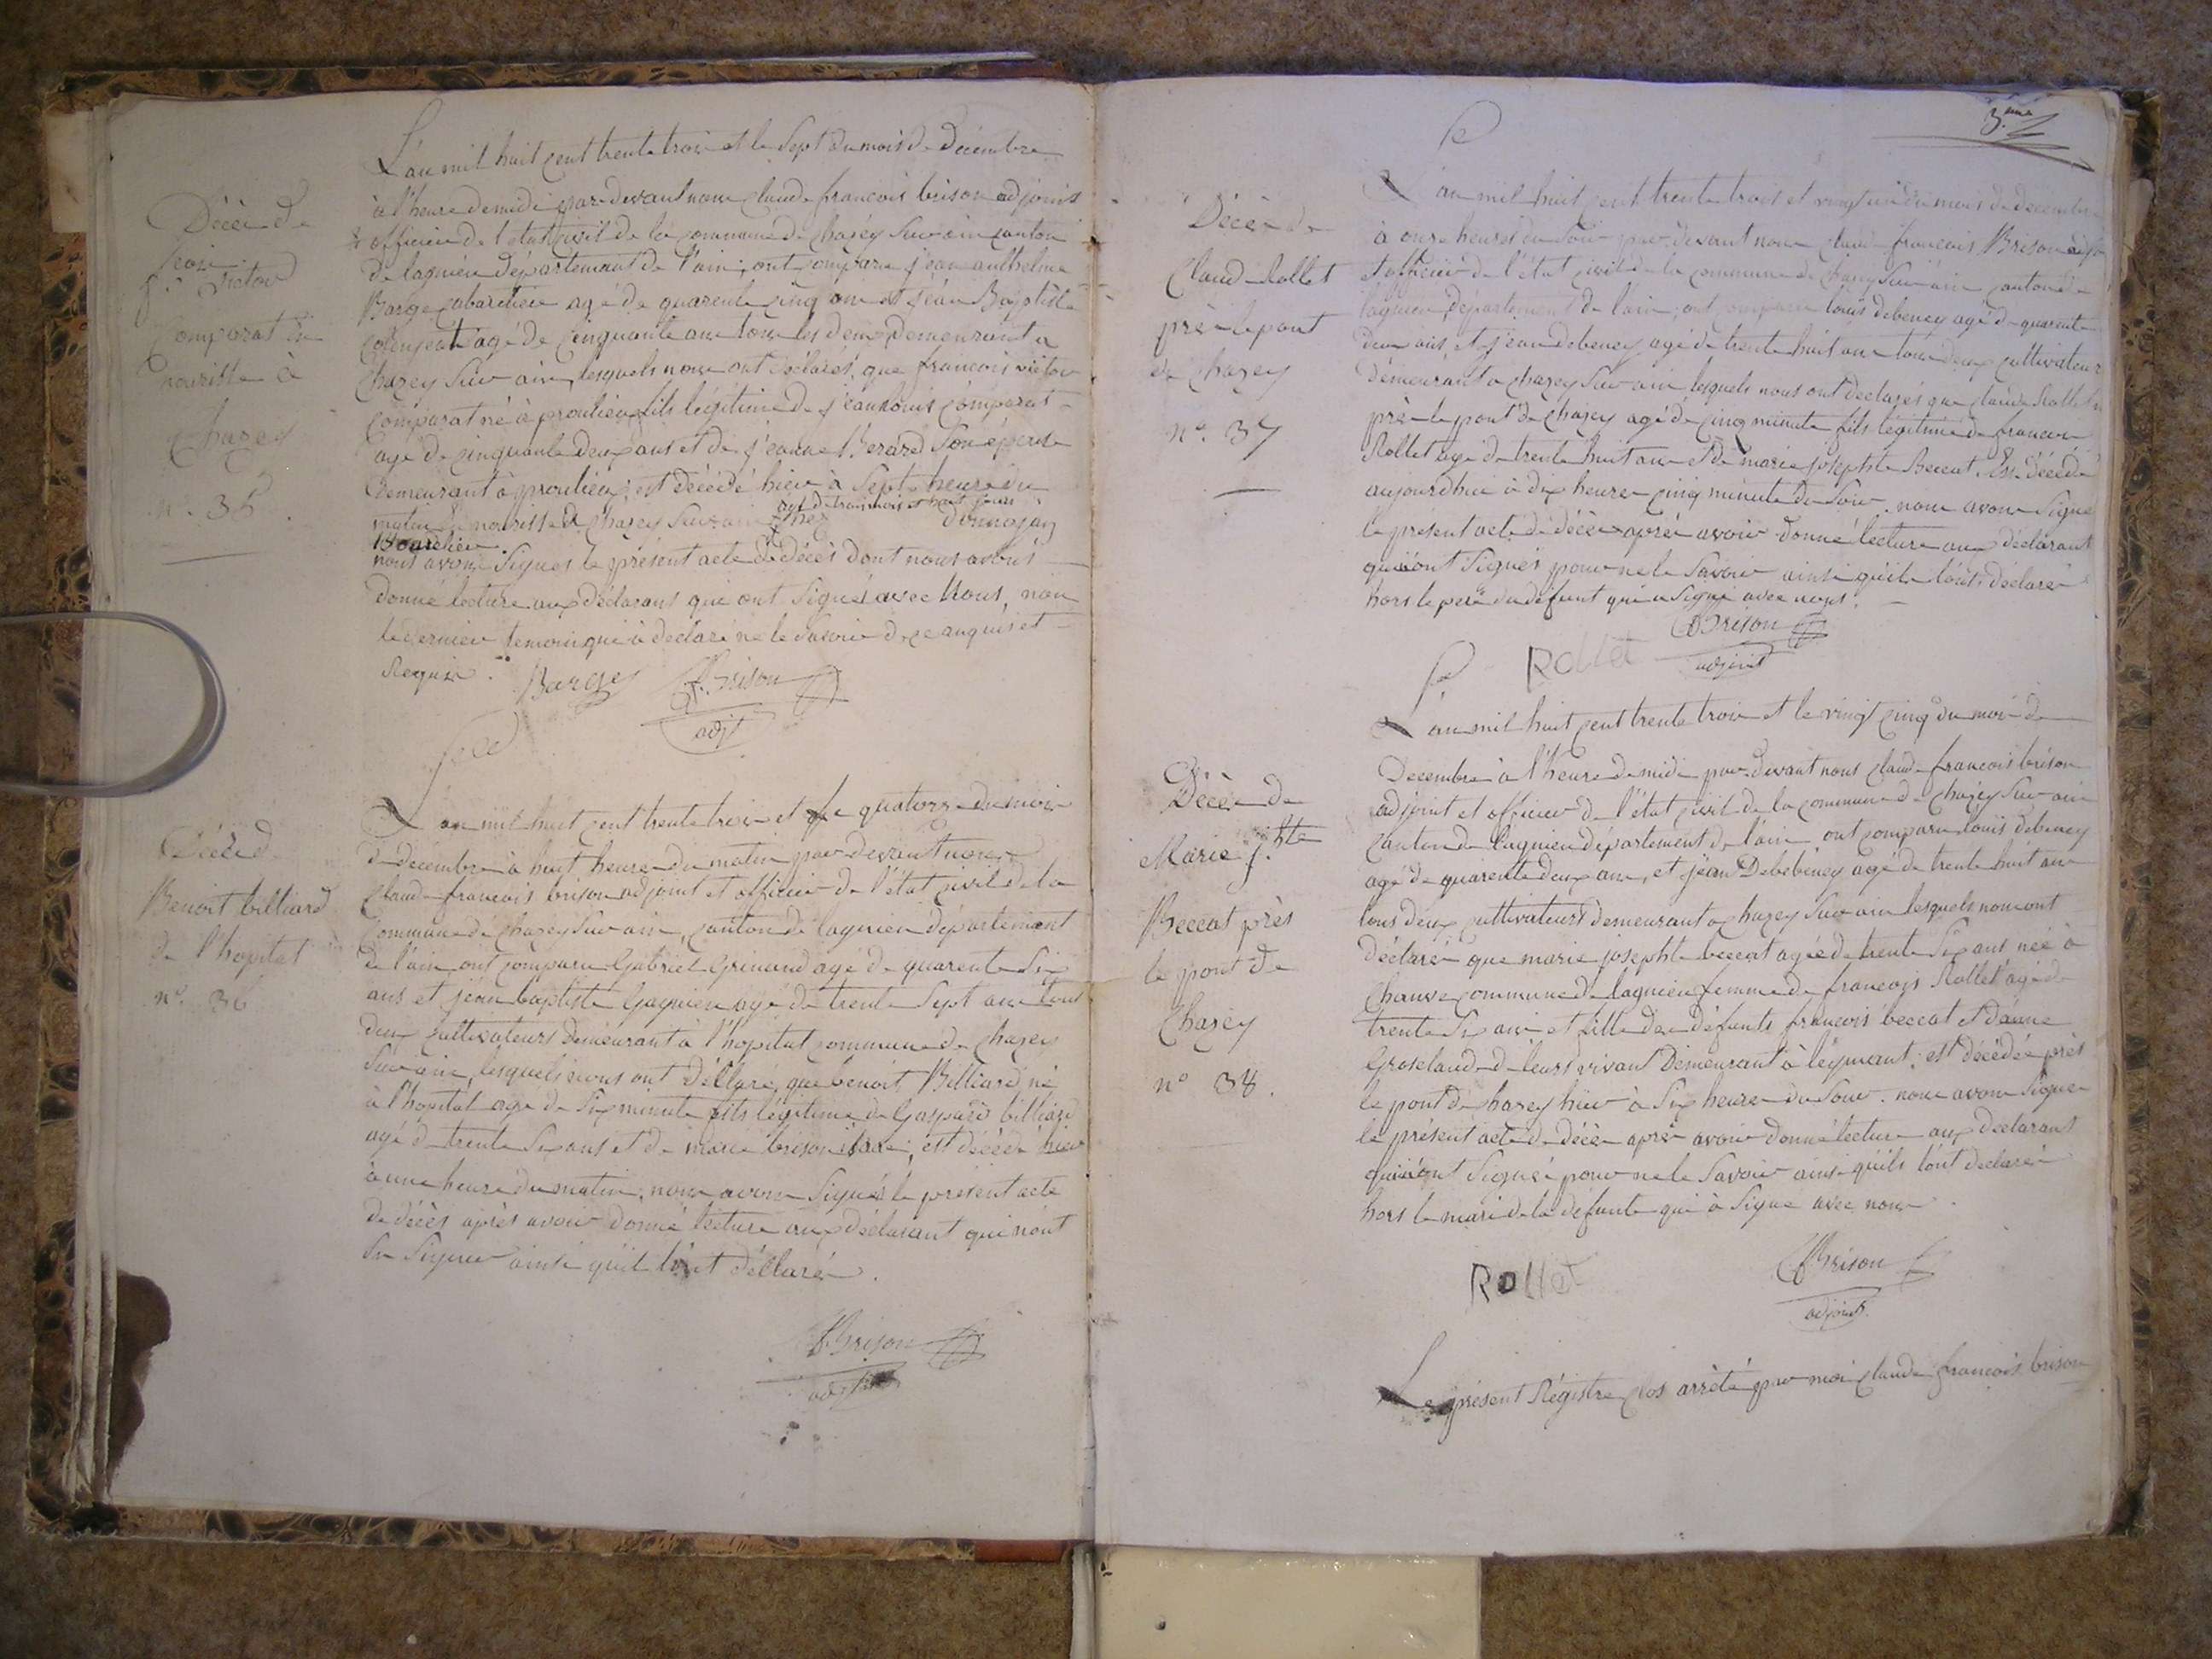 L'an mil huit cent trente trois et le sept du mois de Decembre
à l'heure de midi par devant nous Claude françois brison adjoint
& officier de l'état civil de la commune de chazey sur ain canton
de lagnieu département de l'ain, ont comparu jean anthelme
Barge cabaretier agé de quarente cinq ans et jean Baptiste
agé de cinquante ans tous les deux demeurant a
Chazey sur ain, lesquels nous ont déclarés que francois victor
comparat né à proulieu fils légitime de jean louis comparat
agé de cinquante deux ans et de jeanne Berard son épouse
demeurant à proulieu, est décédé hier à sept heure du
agé de trois mois et huit jours
matin en nourisse à Chazey sur ain chez
Bourelier
nous avons signés le présent acte de décès dont nous avons
donné lecture aux déclarans qui ont signés avec Nous, non
le dernier temoin qui à declaré ne le savoir de ce anquis et
Requis.
Barge CfBrison
adjt
Décès de
victor
Comparat en
nourisse à
Chazey
n°. 35.
L'an mil huit cent trente trois et le quatorze du mois
de décembre à huit heure du matin par devant nous
Claude francois brison adjoint et officier de l'état civil de la
Commune de Chazey sur ain, canton de lagnieu département
de l'ain ont comparu Gabriel Grinand agé de quarente six
ans et jean baptiste Gagnieu agé de trente sept ans tous
deux cultivateurs demeurant à l'hopital commune de Chazey
sur ain, lesquels nous ont déllaré, que benoit Billiard né
à l'hopital agé de six minute fils légitime de Gaspard billiard
agé de trente six ans et de marie brison isaac, est décédé hier
à une heure du matin, nous avons signés le présent acte
de décès après avoir donné lecture aux déclarant qui n'ont
su signer ainsi qu'il l'ont déllaré.
CfBrison
adjt
Décès de
Benoit billiard
de l'hopital
n°. 36
3.eme
L'an mil huit cent trente trois et vingt un du mois de decembre
à onze heures du soir par devant nous claude francois Brison adjt
et officier de l'état civil de la commune de chazey sur ain canton de
lagnieu, département de l'ain, ont comparu louis debeney agé de quarente
deux ans, et jean debeney agé de trente huit ans tous deux cultivateur
démeurant a chazey sur ain lesquels nous ont declarés que claude Rollet né
près le pont de chazey agé de cinq minute fils légitime de francois
Rollet agé de trente huit ans et de marie josephte Beccat. Est décédé
aujourdhui à dix heures cinq minute du soir. nous avons signé
le présent acte de décès après avoir donné lecture aux déclarant
qui n'ont signés pour ne le savoir ainsi qu'ils l'ont déclaré
hors le père du défunt qui a signé avec nous.
Rollet CfBrison
adjoint
Décès de
Claude Rollet
près le pont
de Chazey
n°. 37
L'an mil huit cent trente trois et le vingt cinq du mois de
Decembre à l'heure de midi par devant nous claude francois brison
adjoint et officier de l'état civil de la commune de Chazey sur ain
canton de lagnieu département de l'ain, ont comparu louis debeney
agé de quarente deux ans, et jean Debebeney agé de trente huit ans
tous deux cultivateurs demeurant a chazey sur ain lesquels nous ont
déclaré que marie josephte beccat agée de trente six ans née à
Chanves commune de lagnieu femme de francois Rollet agé de
trente six ans et fille des défunts francois beccat et d'anne
Groseland de leurs vivant Demeurant à lèymant, est décédée près
le pont de chazey hier à six heures du soir. nous avons signer
le présent acte de décès après avoir donné lecture aux declarant
qui n'ont signé pour ne le savoir ainsi qu'ils l'ont declaré
hors le mari de la défunte qui à signé avec nous.
Rollet CfBrison
adjoint
Décès de
Marie j.hte
Beccat près
le pont de
Chazey
n° 38.
Le présent Régistre clos arrêté par moi claude francois brison